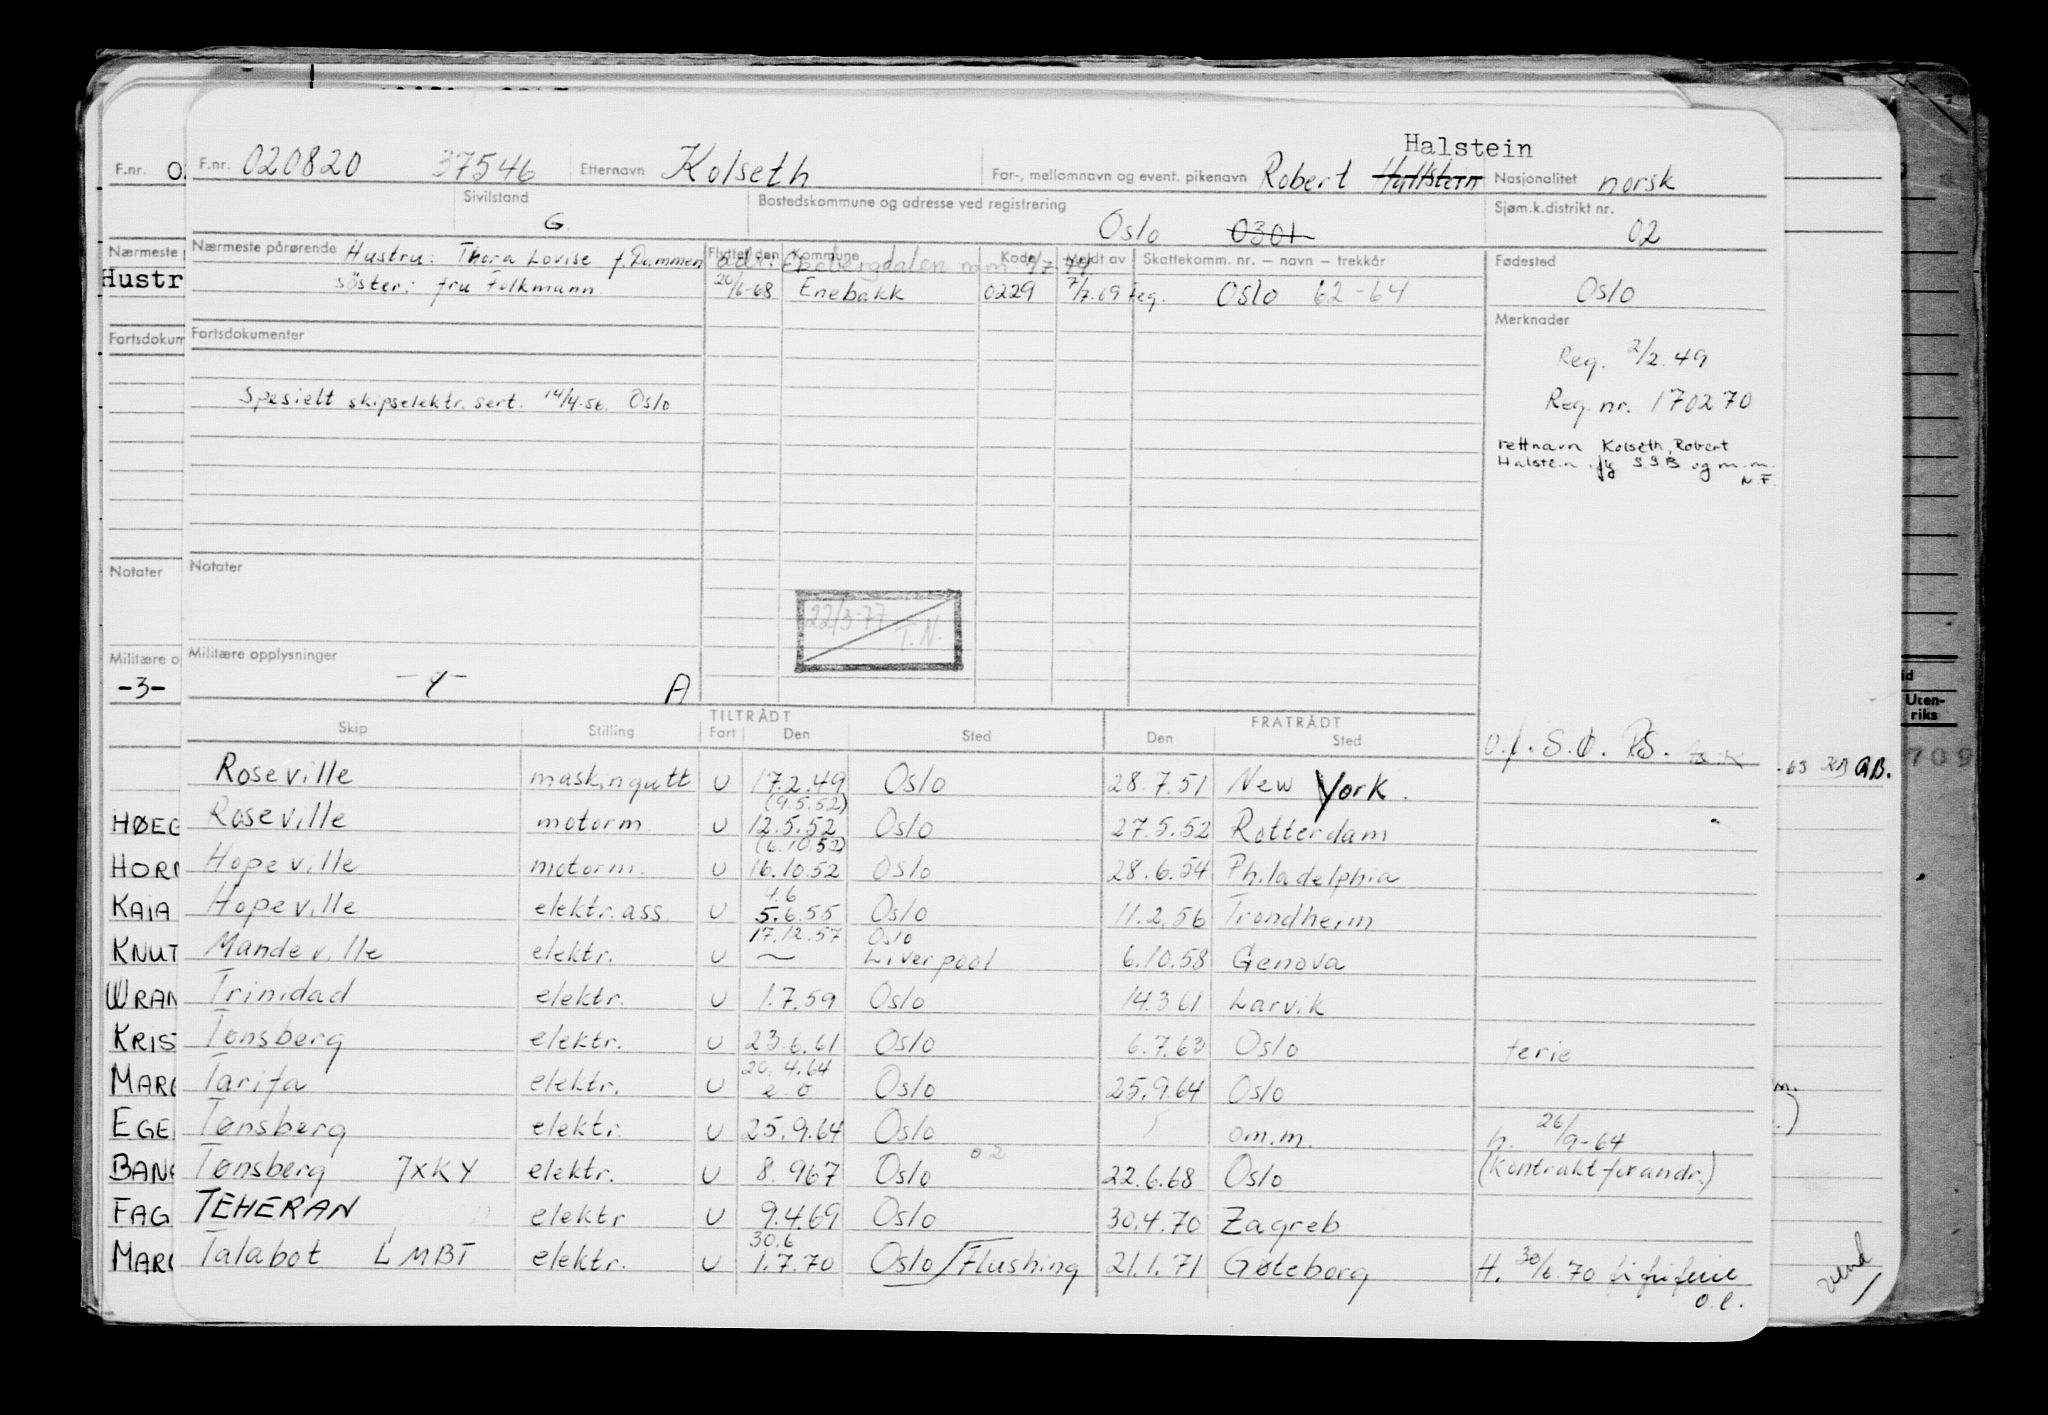 Halstein
F.nr. 020820 37546 Etternavn Kolseth For-, mellomnavn og event. pikenavn Robert Hallstein Nasjonalitet norsk
Sivilstand G. Bostedskommune og adresse ved registrering Oslo 0301 Sjøm.k.distrikt nr. 02
Nærmeste pårørende Hustru: Thora Lovise f. Dammen Flyttet den Kommune Kode Meldt av Skattekomm. nr. — navn — trekkår Fødested
adr: Ekebergdalen
søster: fru Folkmann. 20/6-68 Enebakk 0229 7/7.69 Oslo 62-64 Oslo
Fartsdokumenter Merknader
Reg. 2/2.49
Spesielt skipselektr. sert. 14/4-56. Oslo Reg. nr. 170270
rettnavn Kolseth, Robert
Halstein. S.S.B og m.m.
N.F.
Notater
22/3-77 T.N.
Militære opplysninger
-4- A
Skip Stilling TILTRÅDT Fart Den Sted FRATRÅDT Den Sted
Roseville maskingutt U 17.2.49 Oslo 28.7.51 New York.
(9.5.52)
Roseville motorm U 12.5.52 Oslo 27.5.52 Rotterdam
(6.10.52)
Hopeville motorm. U 16.10.52 Oslo 28.6.54 Philadelphia
Hopeville elektr.ass. U 5.6.55 Oslo 11.2.56 Trondheim
17.12.57 Oslo
Mandeville elektr. U Liverpool 6.10.58 Genova
Trinidad elektr. U 1.7.59 Oslo 14.3.61 Larvik
Tønsberg elektr. U 23.6.61 Oslo 6.7.63 Oslo ferie
20.4.64
Tarifa elektr. U e.o Oslo 25.9.64 Oslo
Tønsberg elektr. U 25.9.64 Oslo om.m. h. 26/9-64
Tønsberg JXKY elektr. U 8.967 Oslo 02 22.6.68 Oslo (Kontrakt forandr.)
TEHERAN elektr U 9.4.69 Oslo 30.4.70 Zagreb
30.6
Talabot LMBT elektr. U 1.7.70 Oslo/Flushing 21.1.71 Gøteborg H. 30/6.70
o.l.
F.nr.
Nærmeste
Hustr
Fartsdokum
Notater
Militære o
-3-
HØEG
HORN
KAIA
KNUT
WRAN
KRIS
MARG
EGE
BAN
FAG
MARG
Uten-
riks
709
vend